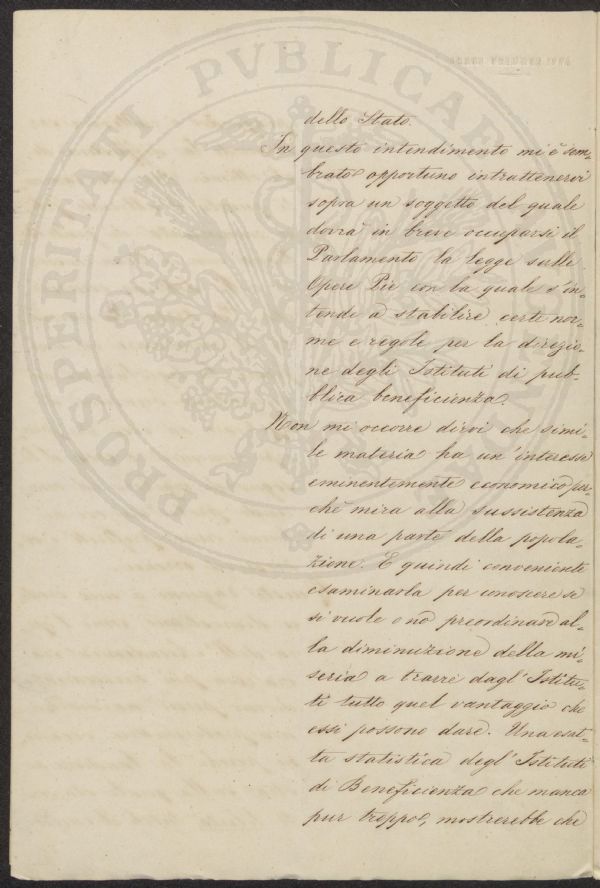 PROSPERITATI PVBLICAE
dello Stato.
In questo intendimento mi è sem=
brato opportuno intrattenervi
sopra un soggetto del quale
dovrà in breve occuparsi il
Parlamento la legge sulle
Opere Pie con la quale s'in=
tende a stabilire certe nor=
me e regole per la direzio=
ne degli Istituti di pub=
blica beneficienza.
Non mi occorre dirvi che simi=
le materia ha un'interesse
eminentemente economico per=
chè mira alla sussistenza
di una parte della popola=
zione. È quindi conveniente
esaminarla per conoscere se
si vuole o nò preordinare al=
la diminuzione della mi=
seria a trarre dagl'Istitu=
ti tutto quel vantaggio che
essi possono dare. Una esat=
ta statistica degl'Istituti
di Beneficienza che manca
pur troppo, mostrerebbe che